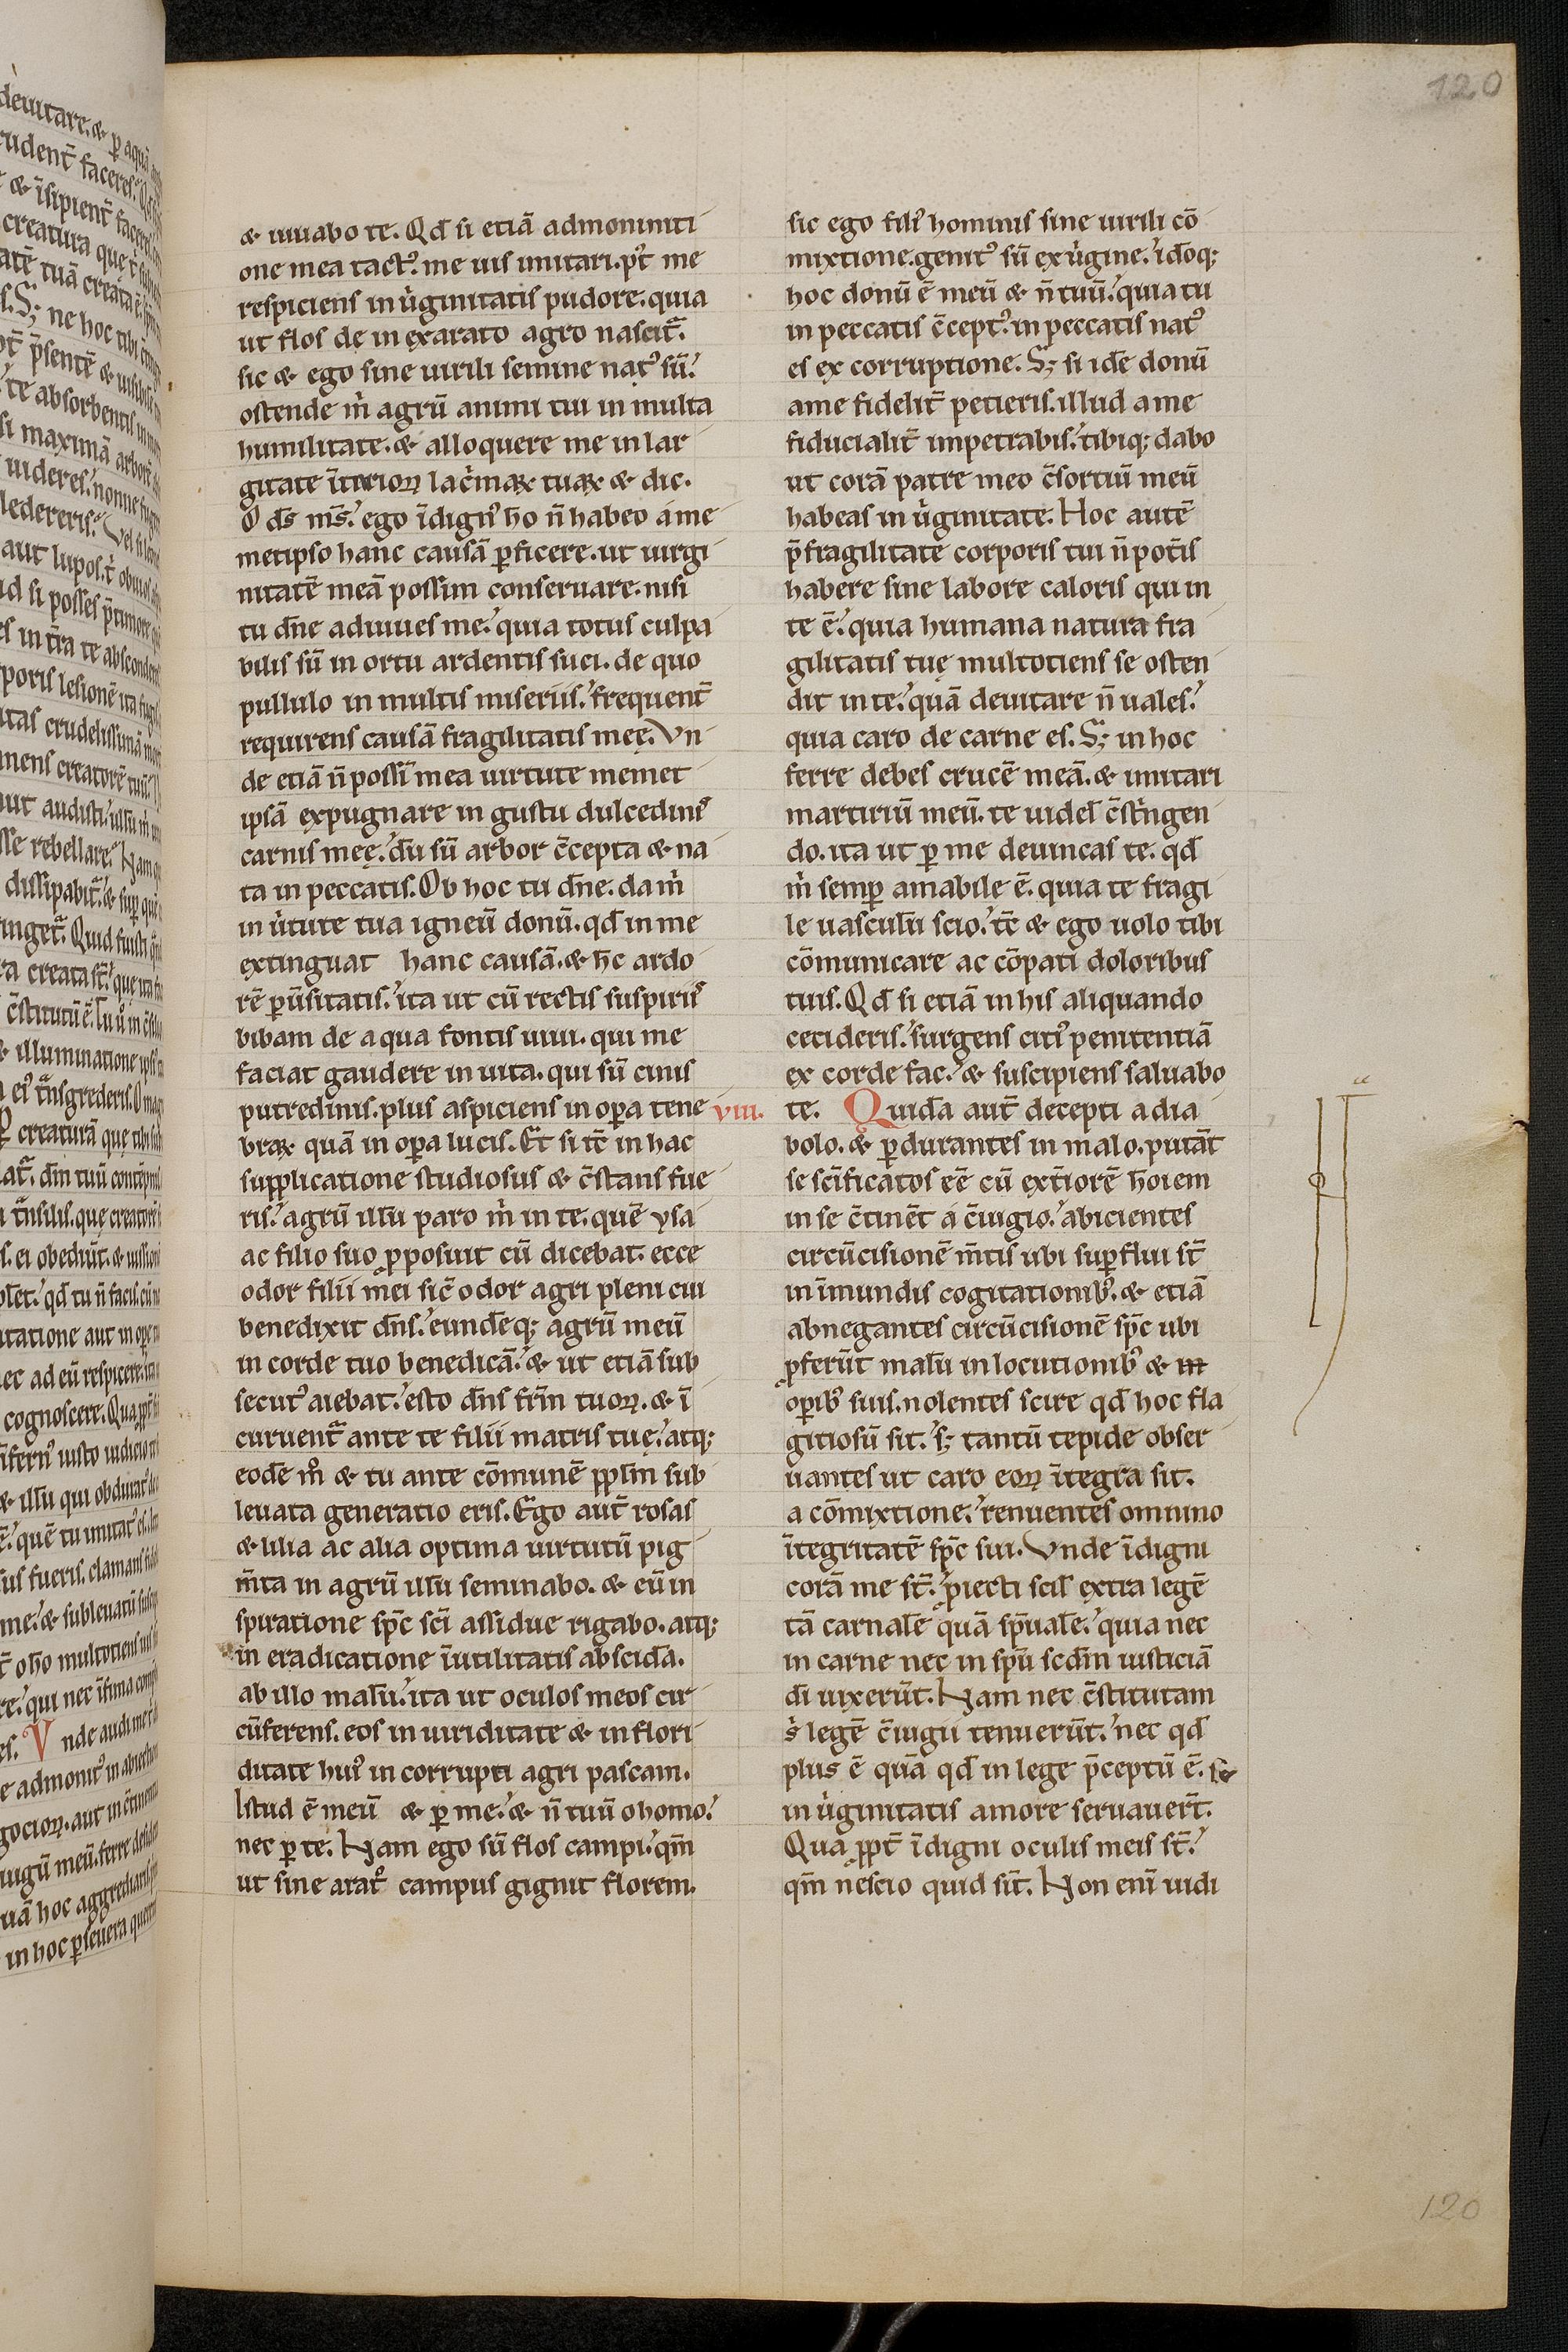 120
& iuuabo te. Qd̄ si etiā admoniniti
one mea tactꝰ me uis imitari. p̄t me
respiciens in ùginitatis pudore. quia
ut flos de in exarato agro nascit᷑.
sic & ego sine uirili semine natꝰ sū.
ostende m̀ agrū animi tui in multa
humilitate. & alloquere me in lar
gitate īteriorꝝ lac̀maꝝ tuaꝝ & dic.
O ds̄ ms̄. ego īdignꝰ hō n̄ habeo á me
metipso hanc causā ꝑficere. ut uirgi
nitatē meā possim conseruare. nisi
tu dn̄e adiuues me. quia totus culpa
bilis sū in ortu ardentis suci. de quo
pullulo in multis miseriis. frequent̄
requirens causā fragilitatis meę. Vn
de etiā n̄ possū mea uirtute memet
ipsā expugnare in gustu dulcedinꝰ
carnis meę. dū sū arbor c̄cepta & na
ta in peccatis. Ob hoc tu dn̄e. da m̀
in ùtute tua igneū donū. qd̄ in me
extinguat hanc causā. & h̄c ardo
rē ꝑūsitatis. ita ut cū rectis suspiriꝰ
bibam de aqua fontis uiui. qui me
faciat gaudere in uita. qui sū cinis
putredinis. plus aspiciens in oꝑa tene
braꝝ quā in oꝑa lucis. Et si tc̄ in hac
supplicatione studiosus & c̄stans fue
ris. agrū illū paro m̀ in te. quē ysa
ac filio suo ꝓposuit cū dicebat. ecce
odor filii mei sic̄ odor agri pleni cui
benedixit dn̄s. eundēq; agrū meū
in corde tuo benedicā. & ut etiā sub
secutꝰ aiebat. esto dn̄s fr̄m tuoꝝ. & ī
curuent᷑ ante te filii matris tuę. atq;
eodē mº & tu ante cōmunē ppl̄m sub
leuata generatio eris. Ego aut̄ rosas
& lilia ac alia optima uirtutū pig
m̄ta in agrū illū seminabo. & eū in
spiratione sp̄c sc̄i assidue rigabo. atq;
in eradicatione īutilitatis abscidā.
ab illo malū. ita ut oculos meos cir
cūferens. eos in uiriditate & in flori
ditate huiꝰ in corrupti agri pascam.
Istud ē meū & ꝑ me. & n̄ tuū o homo.
nec ꝑ te. Nam ego sū flos campi. qm̄
ut sine aratº campus gignit florem.
sic ego filiꝰ hominis sine uirili cō
mixtione. genitꝰ sū ex ùgine. idōq;
hoc donū ē meū & n̄ tuū. quia tu
in peccatis c̄ceptꝰ. in peccatis natꝰ
es ex corruptione. S; si idē donū
a me fidelit̄ petieris. illud a me
fiducialit̄ impetrabis. tibiq; dabo
ut corā patre meo c̄sortiū meū
habeas in ùginitate. Hoc autē
p̄ fragilitatē corporis tui n̄ pot̄is
habere sine labore caloris qui in
te ē. quia humana natura fra
gilitatis tuę multotiens se osten
dit in te. quā deuitare n̄ uales.
quia caro de carne es. S; in hoc
ferre debes crucē meā. & imitari
martiriū meū. te uidel̄ c̄st̀ngen
do. ita ut ꝑ me deuincas te. qd̄
m̀ semꝑ amabile ē. quia te fragi
le uasculū scio. tc̄ & ego uolo tibi
cōmunicare ac cōpati doloribus
tuis. Qd̄ si etiā in his aliquando
cecideris. surgens citiꝰ penitentiā
ex corde fac. & suscipiens saluabo
viii. te. Quidā aut̄ decepti a dia
bolo. & ꝑdurantes in malo. putāt
se sc̄ificatos eē cū ext̄iorē hōiem
in se c̄tinēt á c̄iugio. abicientes
circūcisionē m̄tis ubi suꝑflui st̄
in īmundis cogitationibꝰ. & etiā
abnegantes circūcisionē sp̄c ubi
ꝓferūt malū in locutionibꝰ & in
oꝑibꝰ suis. nolentes scire qd̄ hoc fla
gitiosū sit. s; tantū tepide obser
uantes ut caro eoꝝ ītegra sit.
a cōmixtione. renuentes omnino
ītegritatē sp̄c sui. Vnde īdigni
corā me st̄. ꝓiecti scil̄ extra legē
tā carnalē quā sp̄ualē. quia nec
in carne nec in sp̄u scd̄m iusticiā
dī uixerūt. Nam nec c̄stitutam
s̀ legē c̄iugii tenuerūt. nec qd̄
plus ē quā qd̄ in lege p̄ceptū ē. se
in ùginitatis amore seruauer̄t.
Qua ꝓpt̄ īdigni oculis meis st̄.
qm̄ nescio quid sīt. Non enī uidi
120